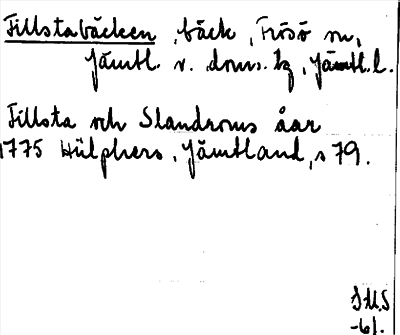 Fillstabäcken, bäck, Frösö sn,
Jämtl. v. doms. tg, Jämtl. l.
Fillsta och Slandroms åar
1775 Hülphers, Jämtland, s 79.
SMS
-61.